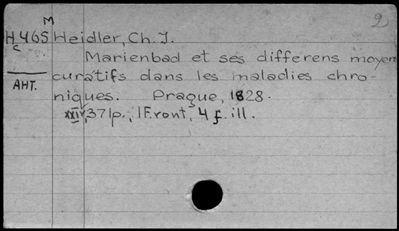 M 2
H.465 Heidler, Ch. J.
c Marienbad et ses differens moyen
AHT. curatifs dans les maladies chro-
niques. Prague, 1828.
XXIV, 371p., 1 Front, 4 f. ill.